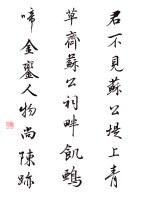 君不見蘇公堤上青
草齋蘇公祠畔飢鴟
啼金鑾人物尚陳跡